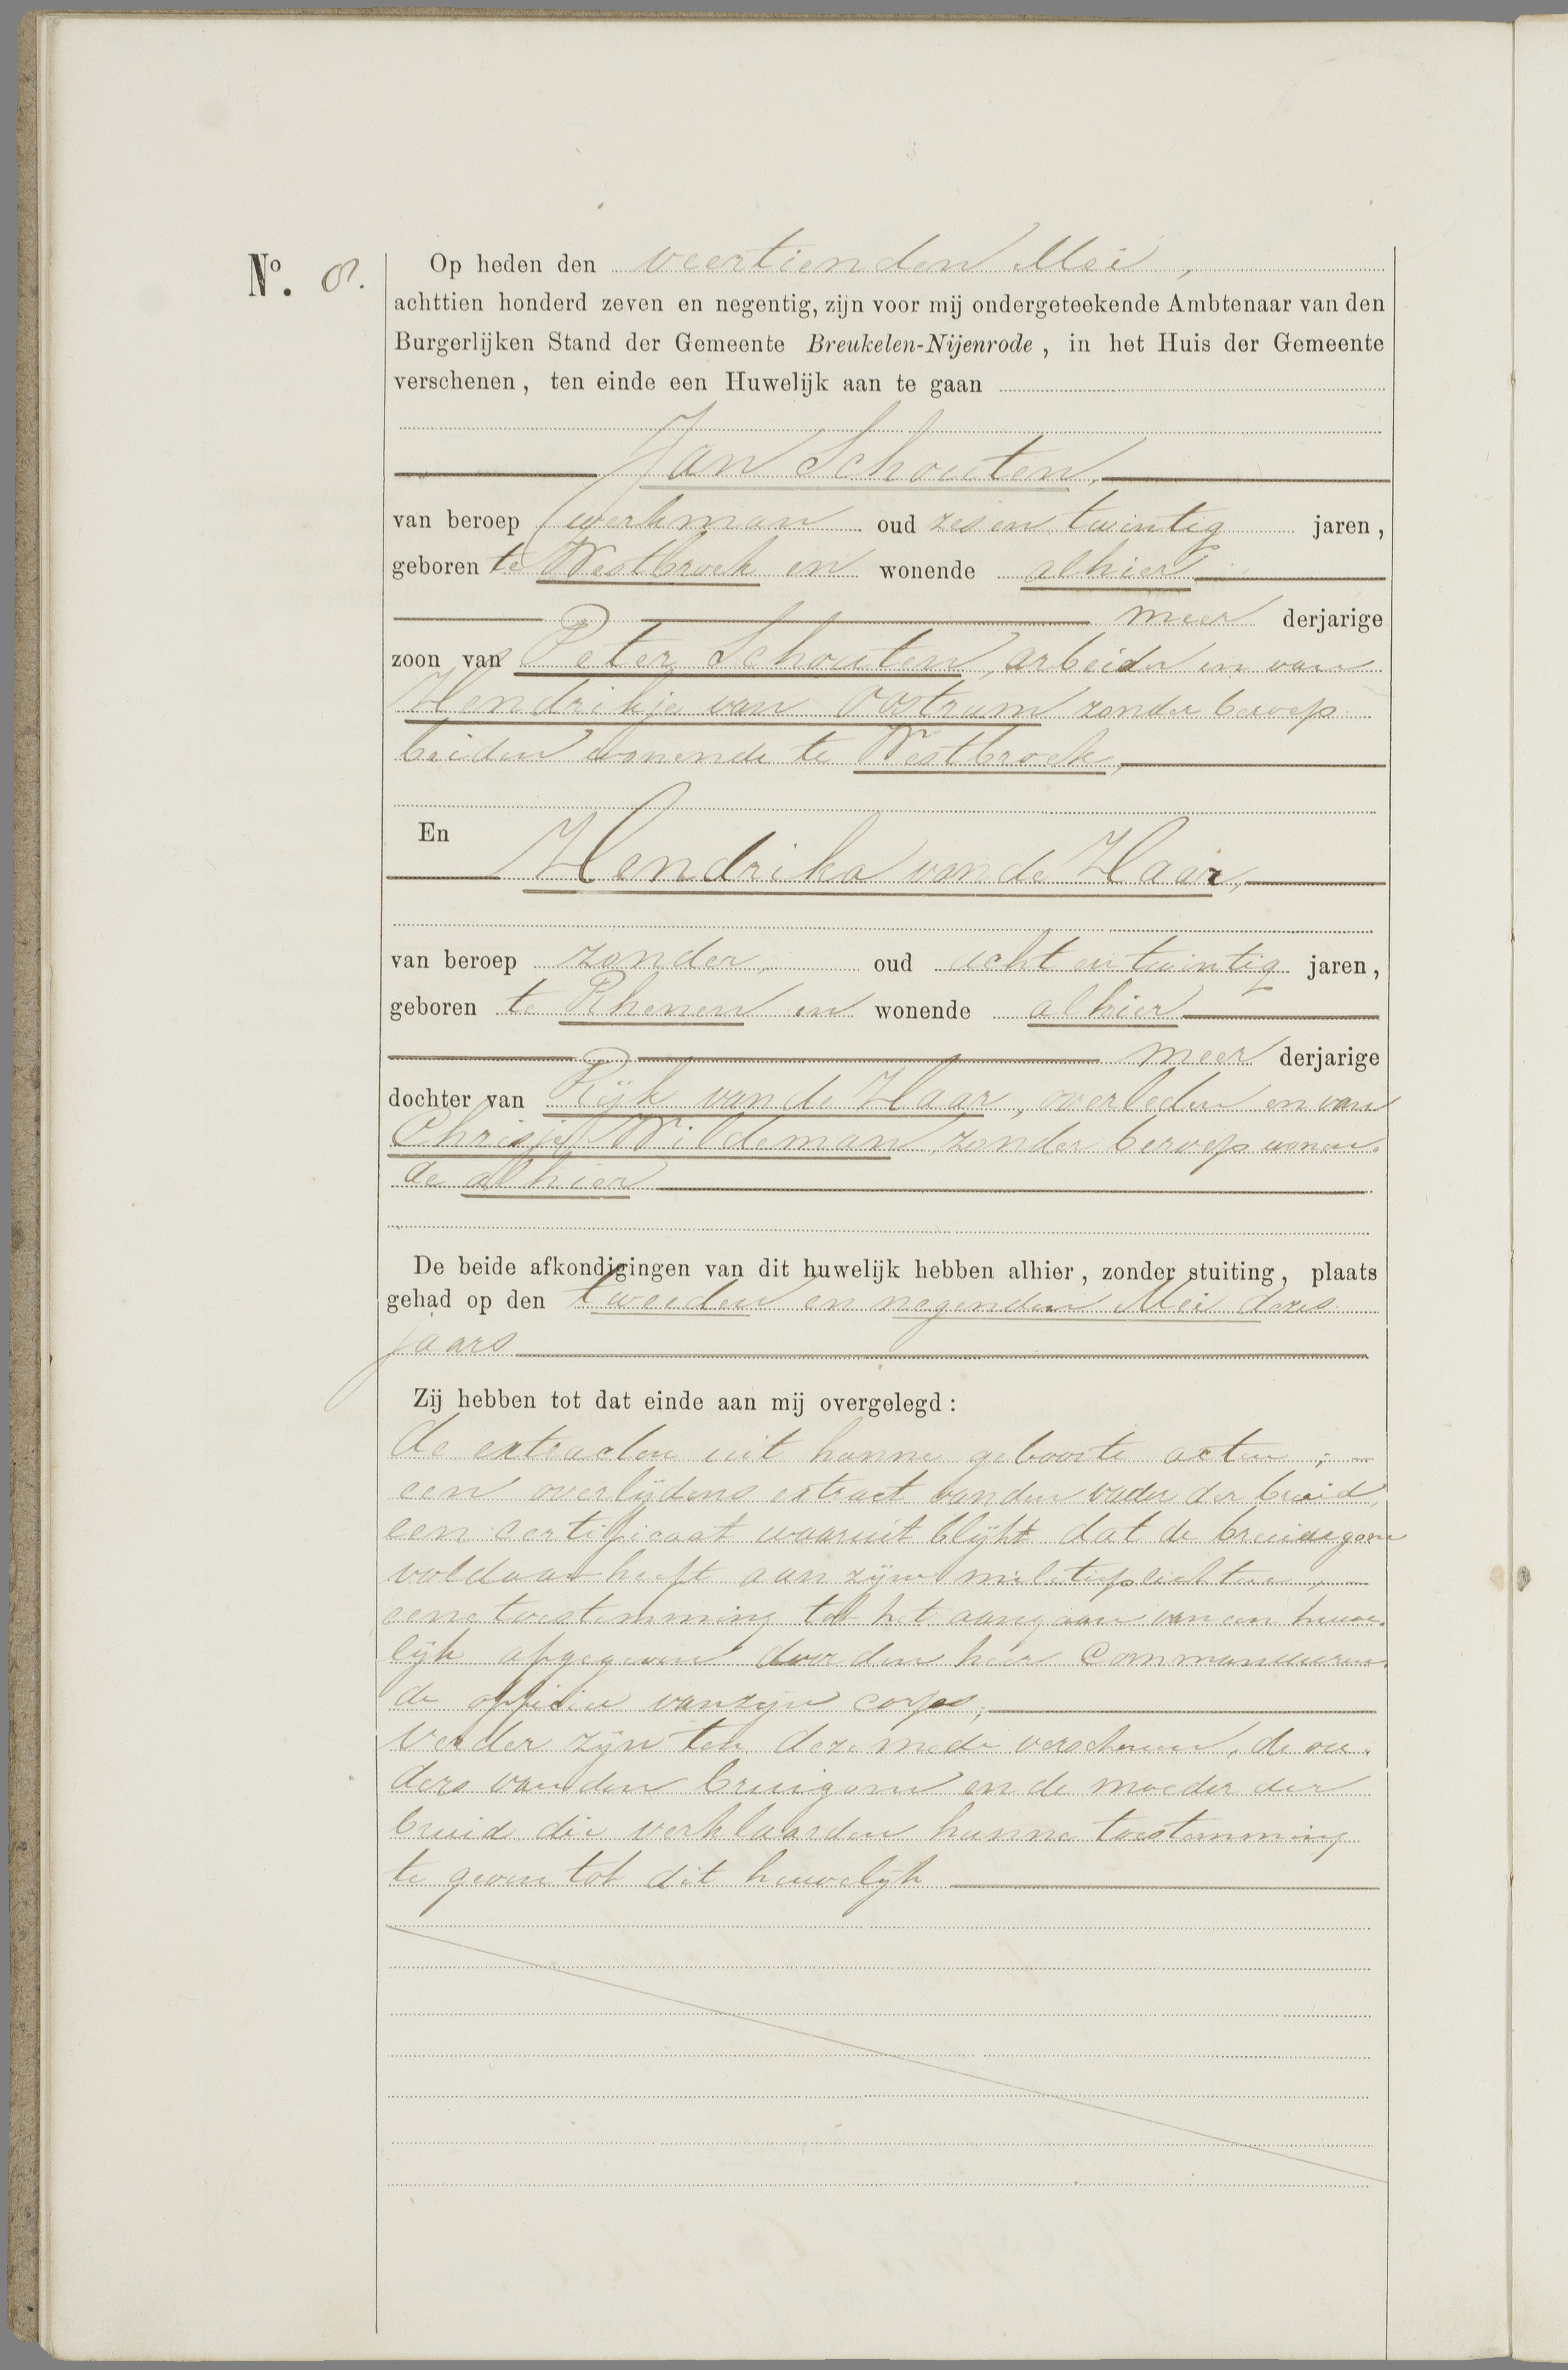 Nº. 8.
Op heden den veertienden Mei,
achttien honderd zeven en negentig, zijn voor mij ondergeteekende Ambtenaar van den
Burgerlijken Stand der Gemeente Breukelen-Nijenrode, in het Huis der Gemeente
verschenen, ten einde een Huwelijk aan te gaan
Jan Schouten,
van beroep werkman oud zes en twintig jaren,
geboren te Westbroek en wonende alhier
meer derjarige
zoon van Peter Schouten, arbeider en van
Hendrikje van Oostrum zonder beroep
beiden wonende te Westbroek,
En
Hendrika van de Haar,
van beroep zonder, oud acht en twintig jaren,
geboren te Rhenen en wonende alhier
meer derjarige
dochter van Rijk van de Haar, overleden en van
Chrisje Wildeman, zonder beroep wonen-
de alhier
De beide afkondigingen van dit huwelijk hebben alhier, zonder stuiting, plaats
gehad op den tweeden en negenden Mei dezes
jaars
Zij hebben tot dat einde aan mij overgelegd:
de extracten uit hunne geboorte acten;
een overlijdens extract van den vader der bruid,
een certificaat waaruit blijkt dat de bruidegom
voldaan heeft aan zijne militieplichten,
eene toestemming tot het aangaan van een huwe-
lijk afgegeven door den heer Commandeeren-
de officier van zijn corps;
Verder zijn ten deze mede verschenen, de ou-
ders van den bruigom en de moeder der
bruid die verklaarden hunne toestemming
te geven tot dit huwelijk